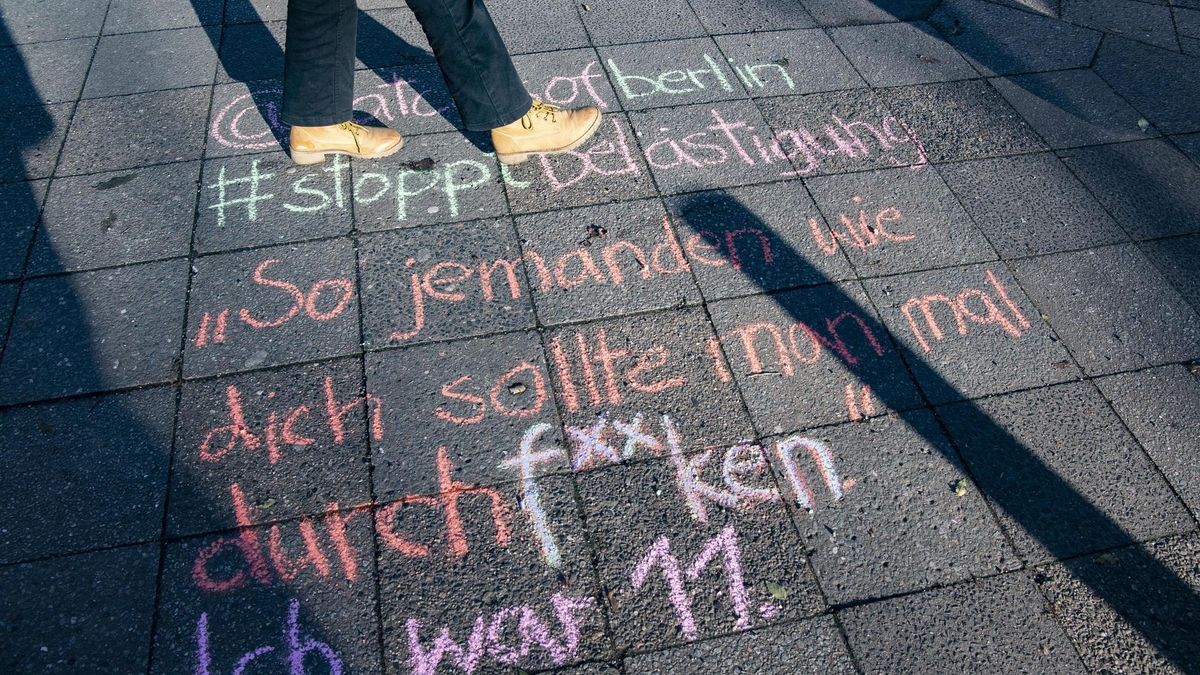 @catcallsofberlin
#stoppt belästigung
„So jemanden wie
dich sollte man mal
durchfxxken."
Ich war 11.